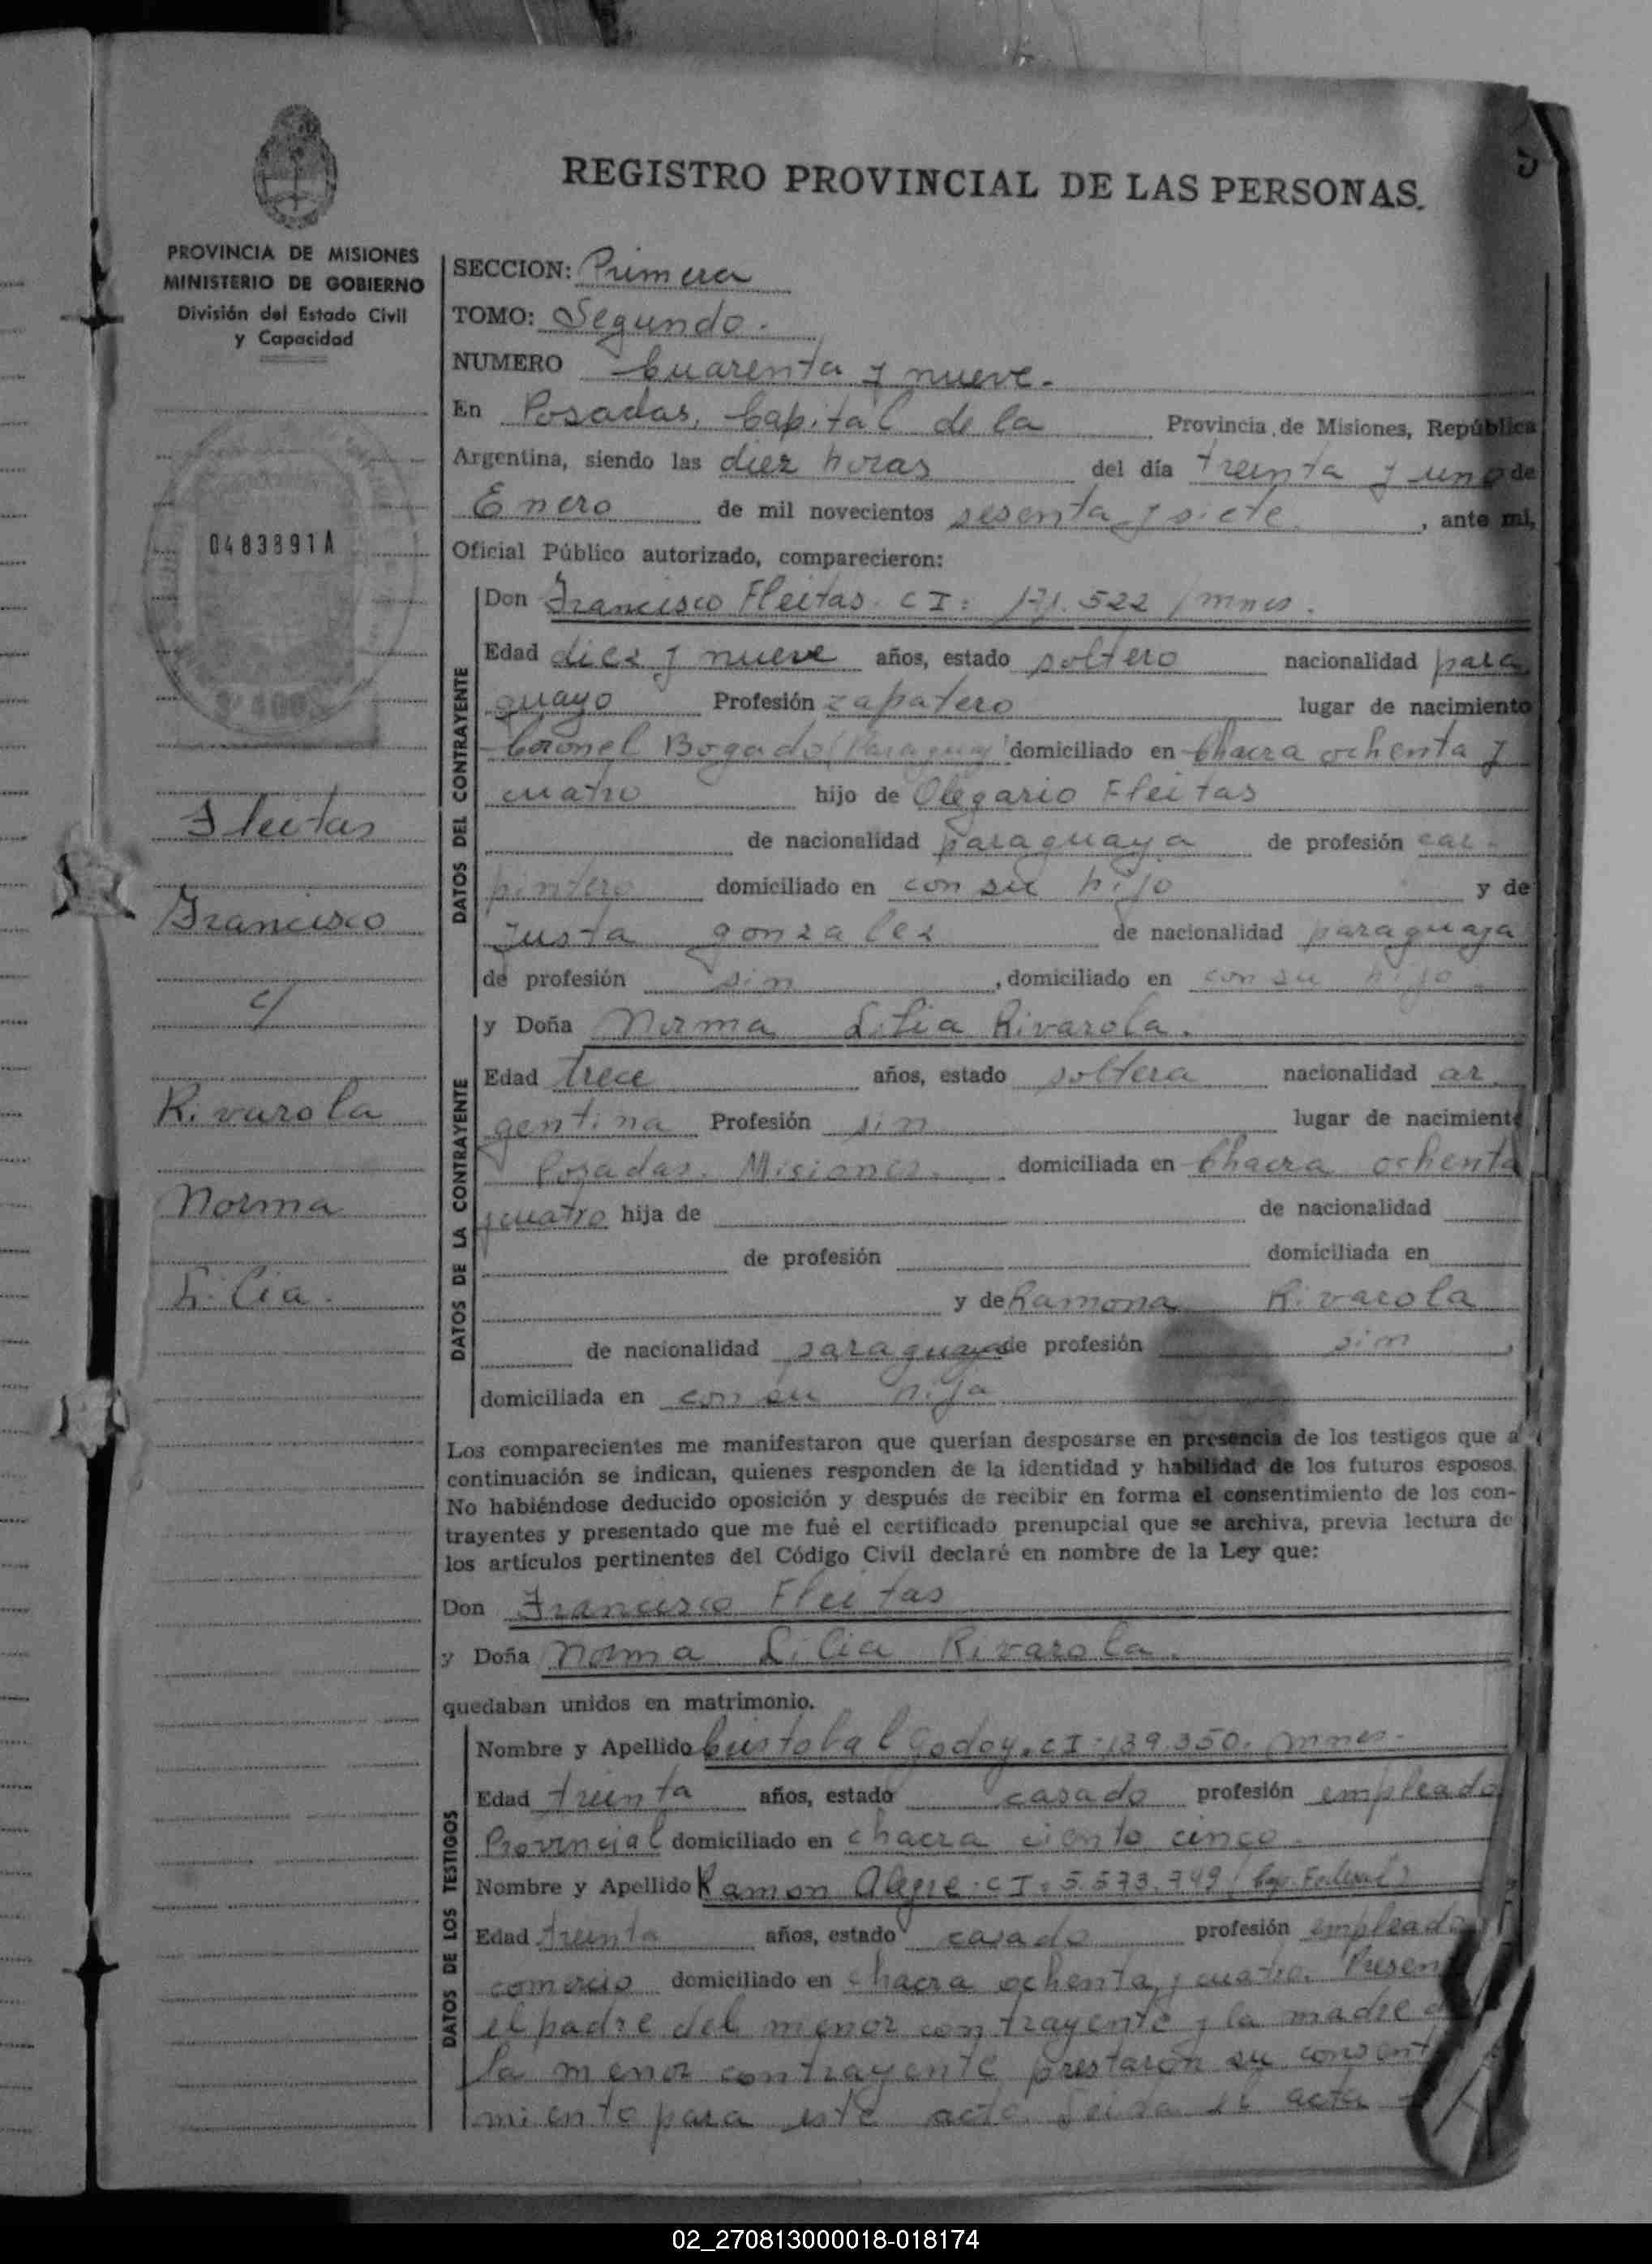 REGISTRO PROVINCIAL DE LAS PERSONAS.
PROVINCIA DE MISIONES
MINISTERIO DE GOBIERNO
División del Estado Civil
y Capacidad
0483891A
Fleitas
Francisco
c/
Rivarola
Norma
Lilia.
SECCION: Primera
TOMO: Segundo.
NUMERO Cuarenta y nueve.
En Posadas, Capital de la Provincia de Misiones, República
Argentina, siendo las diez horas del día treinta y uno de
Enero de mil novecientos sesenta y siete, ante mi,
Oficial Público autorizado, comparecieron:
DATOS DEL CONTRAYENTE
Don Francisco Fleitas. CI: 171.522 /mnes.
Edad diez y nueve años, estado soltero nacionalidad para
guayo Profesión zapatero lugar de nacimiento
Coronel Bogado (Paraguay) domiciliado en Chacra ochenta y
cuatro hijo de Olegario Fleitas
de nacionalidad paraguaya de profesión car-
pintero domiciliado en con su hijo y de
Justa gonzalez de nacionalidad paraguaya
de profesión sin, domiciliado en con su hijo
DATOS DE LA CONTRAYENTE
y Doña Norma Lilia Rivarola.
Edad trece años, estado soltera nacionalidad ar
gentina Profesión sin lugar de nacimiento
Posadas. Misiones. domiciliada en Chacra ochenta
y cuatro hija de de nacionalidad
de profesión domiciliada en
y de Ramona Rivarola
de nacionalidad paraguaya de profesión sin,
domiciliada en con su hija
Los comparecientes me manifestaron que querían desposarse en presencia de los testigos que a
continuación se indican, quienes responden de la identidad y habilidad de los futuros esposos.
No habiéndose deducido oposición y después de recibir en forma el consentimiento de los con-
trayentes y presentado que me fué el certificado prenupcial que se archiva, previa lectura de
los artículos pertinentes del Código Civil declaré en nombre de la Ley que:
Don Francisco Fleitas
y Doña Norma Lilia Rivarola.
quedaban unidos en matrimonio.
DATOS DE LOS TESTIGOS
Nombre y Apellido Cristobal Godoy. CI: 139.350. mnes.
Edad treinta años, estado casado profesión empleado
Provincial domiciliado en chacra ciento cinco.
Nombre y Apellido Ramon Alegre. CI: 5.573.749 (Cap. Federal)
Edad treinta años, estado casado profesión empleado
comercio domiciliado en chacra ochenta y cuatro. Presen
el padre del menor contrayente y la madre d
la menor contrayente prestaron su consenti
miento para este acto. Leida el acta
02_270813000018-018174